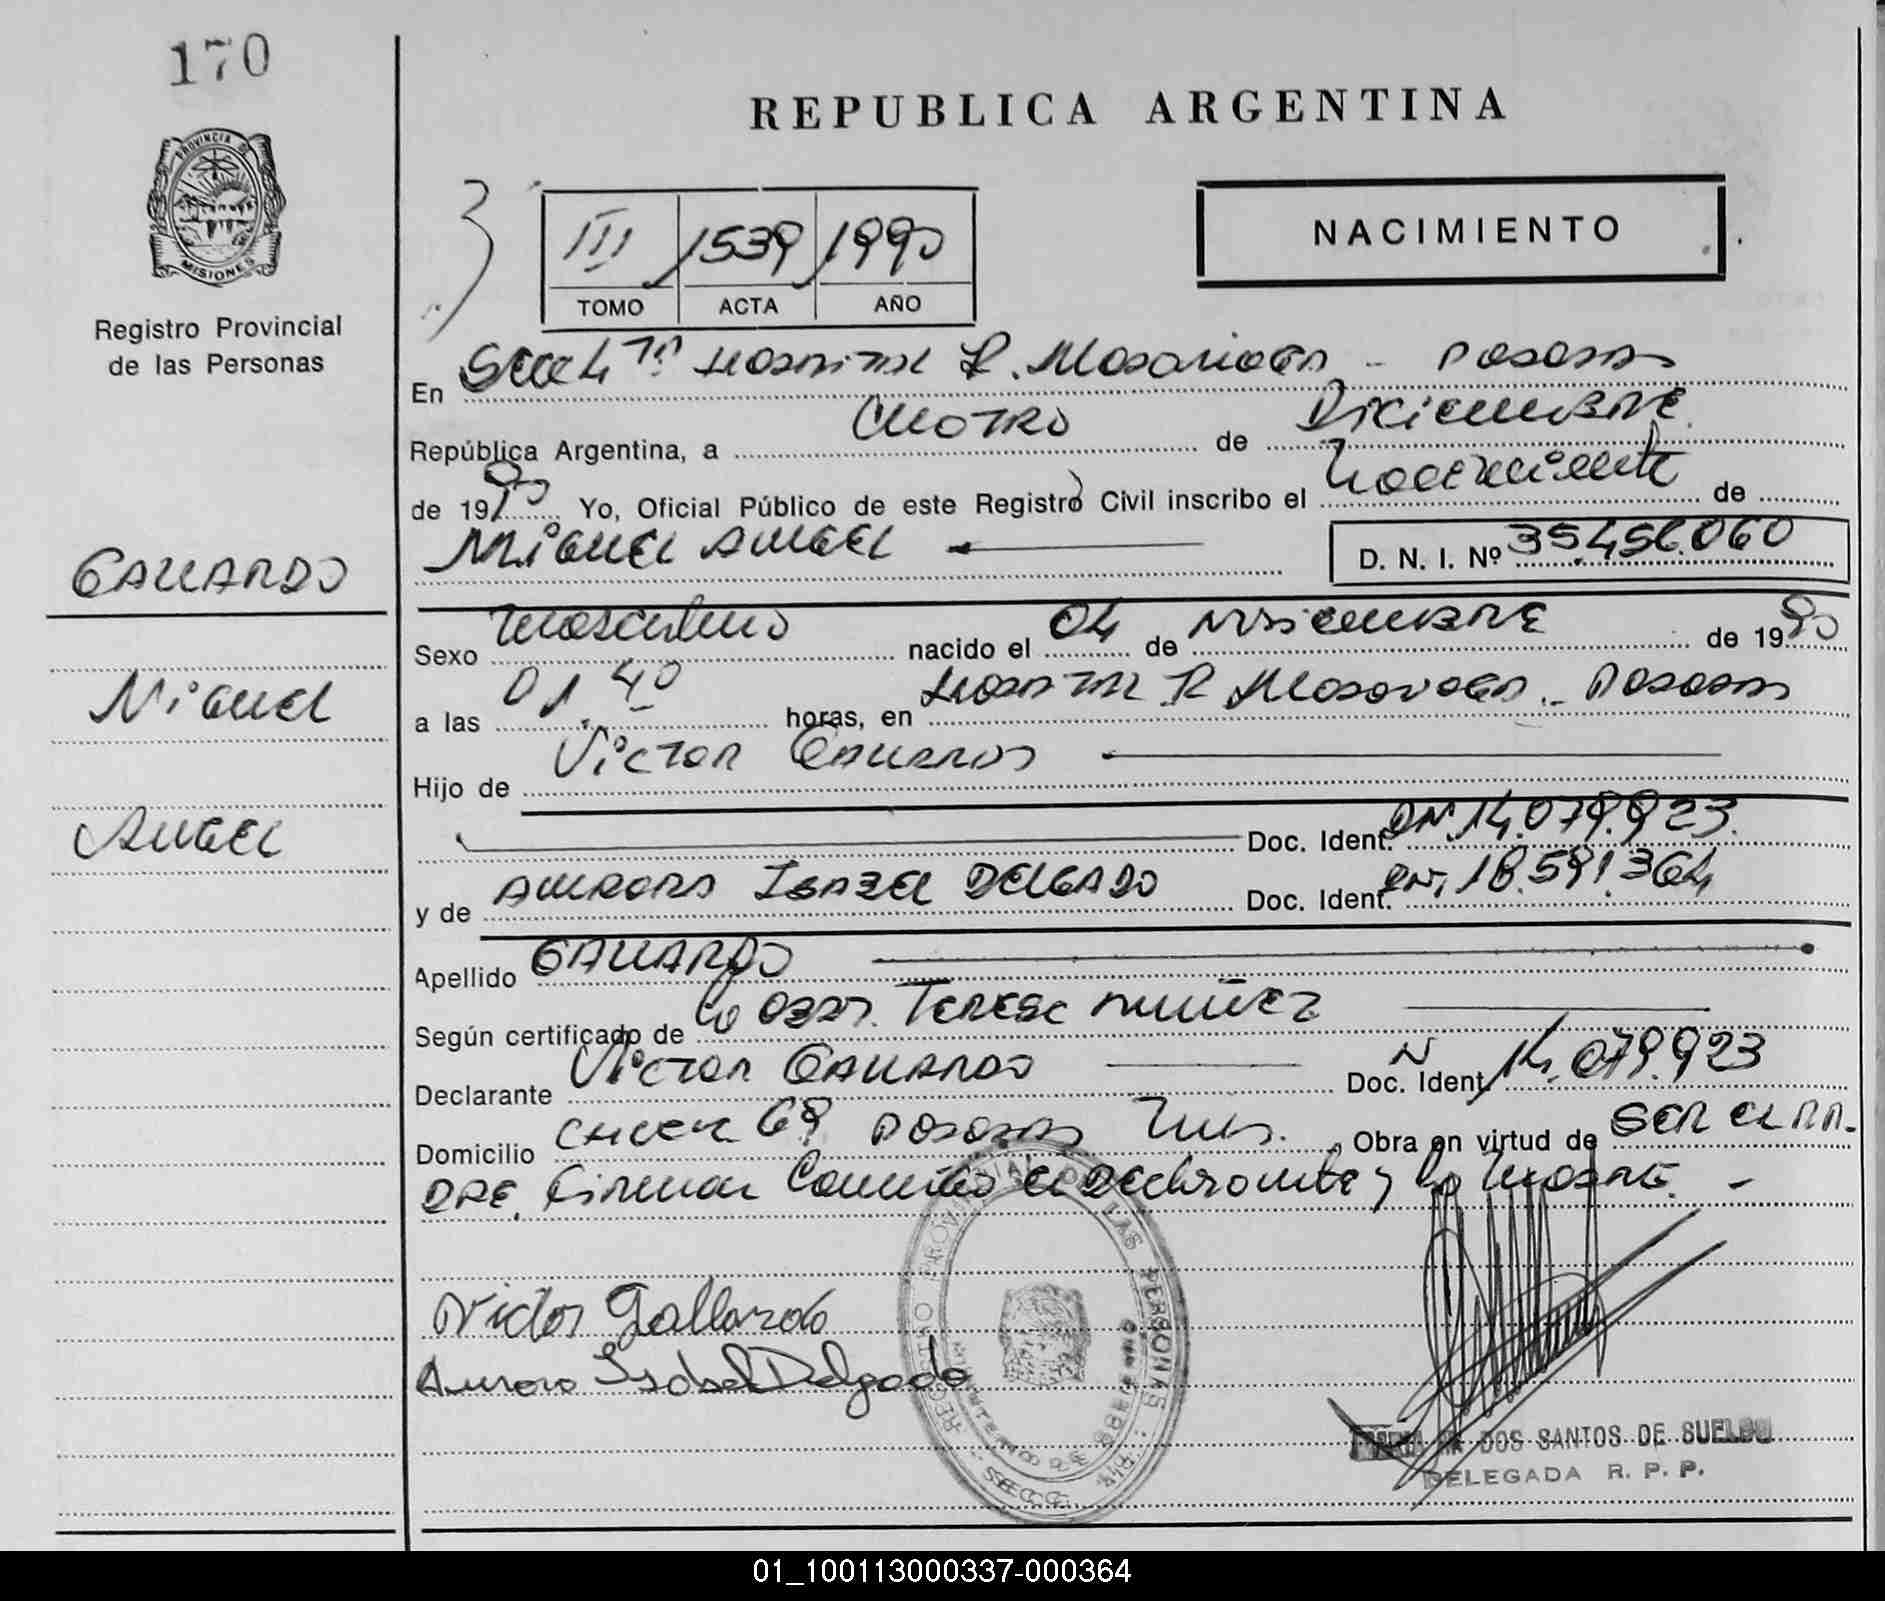 170
PROVINCIA DE
MISIONES
Registro Provincial
de las Personas
REPUBLICA ARGENTINA
NACIMIENTO
III 1539 1990
TOMO ACTA AÑO
En Secc 4ta Hospital R. Madariaga - Posadas
República Argentina, a Cuatro de Diciembre
de 1990 Yo, Oficial Público de este Registro Civil inscribo el Nacimiento de
Miguel Angel D. N. I. Nº 35.456.060
GALLARDO
Sexo Masculino nacido el 04 de Diciembre de 1990
Miguel
a las 01.40 horas, en Hospital R Madariaga - Posadas
Hijo de Victor Gallardo
Angel
Doc. Ident. DNI. 14.079.923
y de Aurora Isabel DELGADO Doc. Ident. DNI. 18.591.364
Apellido GALLARDO
Según certificado de la Obst. Teresa Nuñez
Declarante Victor Gallardo Doc. Ident. 14.079.923
Domicilio 69 Posadas Mnes. Obra en virtud de ser el pa-
dre. Firman Conmigo el declarante y la madre. -
Victor Gallardo
Aurora Isabel Delgado
REGISTRO PROVINCIAL DE LAS PERSONAS
DOS SANTOS DE SUELDO
DELEGADA R. P. P.
01_100113000337-000364